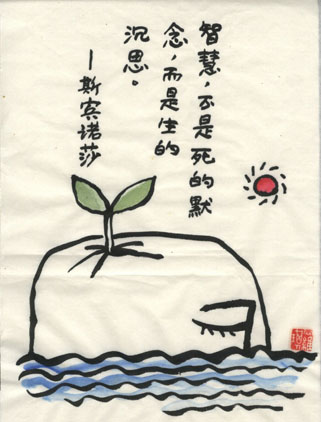 智慧，不是死的默
念，而是生的
沉思。
—斯宾诺莎